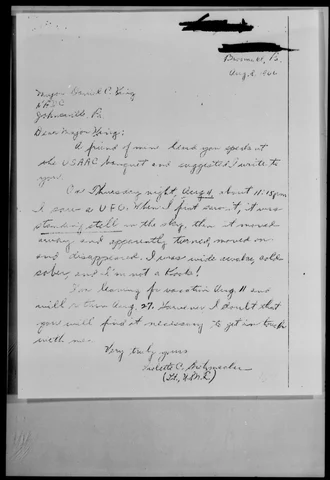 Aug. 8, 166
Major Daniel P. King
NASC
Johnsville, Pa.
Dear Major King:
A friend of mine heard you speak at
the USAAC banquet and suggested I write to
you.
On Thursday night, Aug 4, about 11:15pm
I saw a UFO. When I first saw it, it was
standing still in the sky, then it moved
away and apparently turned, moved on
and disappeared. I was wide awake, cold
sober, and I'm not a kook!
I'm leaving for vacation Aug. 11 and
will return Aug. 27. However I doubt that
you will find it necessary to get in touch
with me.
Very truly yours
C.
(Lt.,